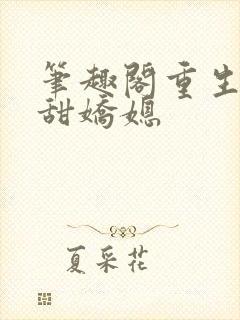 筆趣閣重生
甜嬌媳
夏采花